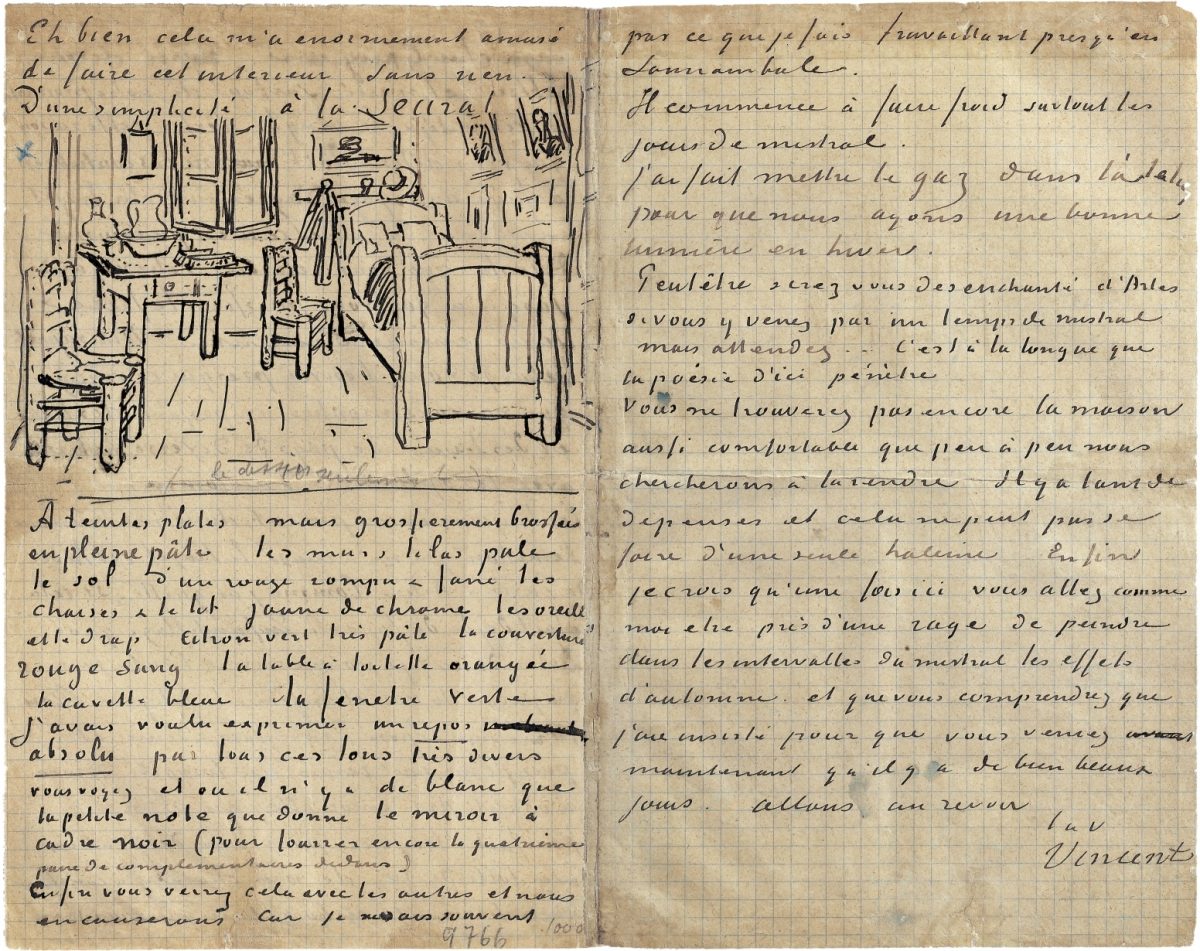 Eh bien cela m'a enormement amusé
de faire cet interieur sans rien.
D'une simplicité à la Seurat
(le dessin seulement)
A teintes plates mais grossierement brossées
en pleine pâte les murs lilas pale
le sol d'un rouge rompu & fané les
chaises & le lit jaune de chrome les oreill
et le drap citron vert très pâle la couverture
rouge sang la table à toilette orangée
la cuvette bleue la fenetre verte
j'avais voulu exprimer un repos
absolu par tous ces tons très divers
vous voyez et ou il n'y a de blanc que
la petite note que donne le miroir à
cadre noir (pour fourrer encore la quatrieme
paire de complementaires dedans)
Enfin vous verrez cela avec les autres et nous
en causerons car je ne sais souvent
9766
1000
par ce que je fais travaillant presqu'en
somnambule.
Il commence à faire froid surtout les
jours de mistral.
j'ai fait mettre le gaz dans l'atelier
pour que nous ayons une bonne
lumière en hiver.
Peutêtre serez vous desenchanté d'Arles
si vous y venez par un temps de mistral
mais attendez.. C'est à la longue que
la poésie d'ici pénètre
Vous ne trouverez pas encore la maison
aussi comfortable que peu à peu nous
chercherons à la rendre Il y a tant de
depenses et cela ne peut pas se
faire d'une seule haleine Enfin
je crois qu'une fois ici vous allez comme
moi etre pris d'une rage de peindre
dans les intervalles du mistral les effets
d'automne. et que vous comprendrez que
j'aie insisté pour que vous veniez
maintenant qu'il y a de bien beaux
jours. allons au revoir
t. à v
Vincent